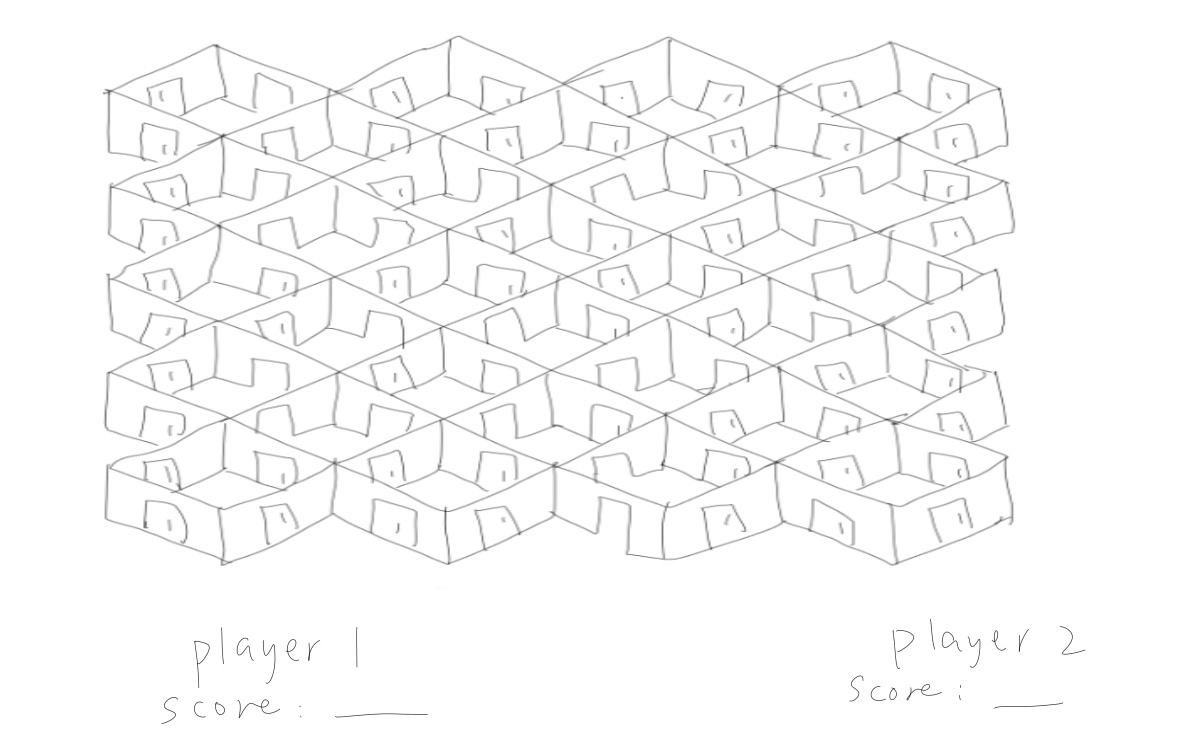 player 1
score: ____
player 2
score: ____